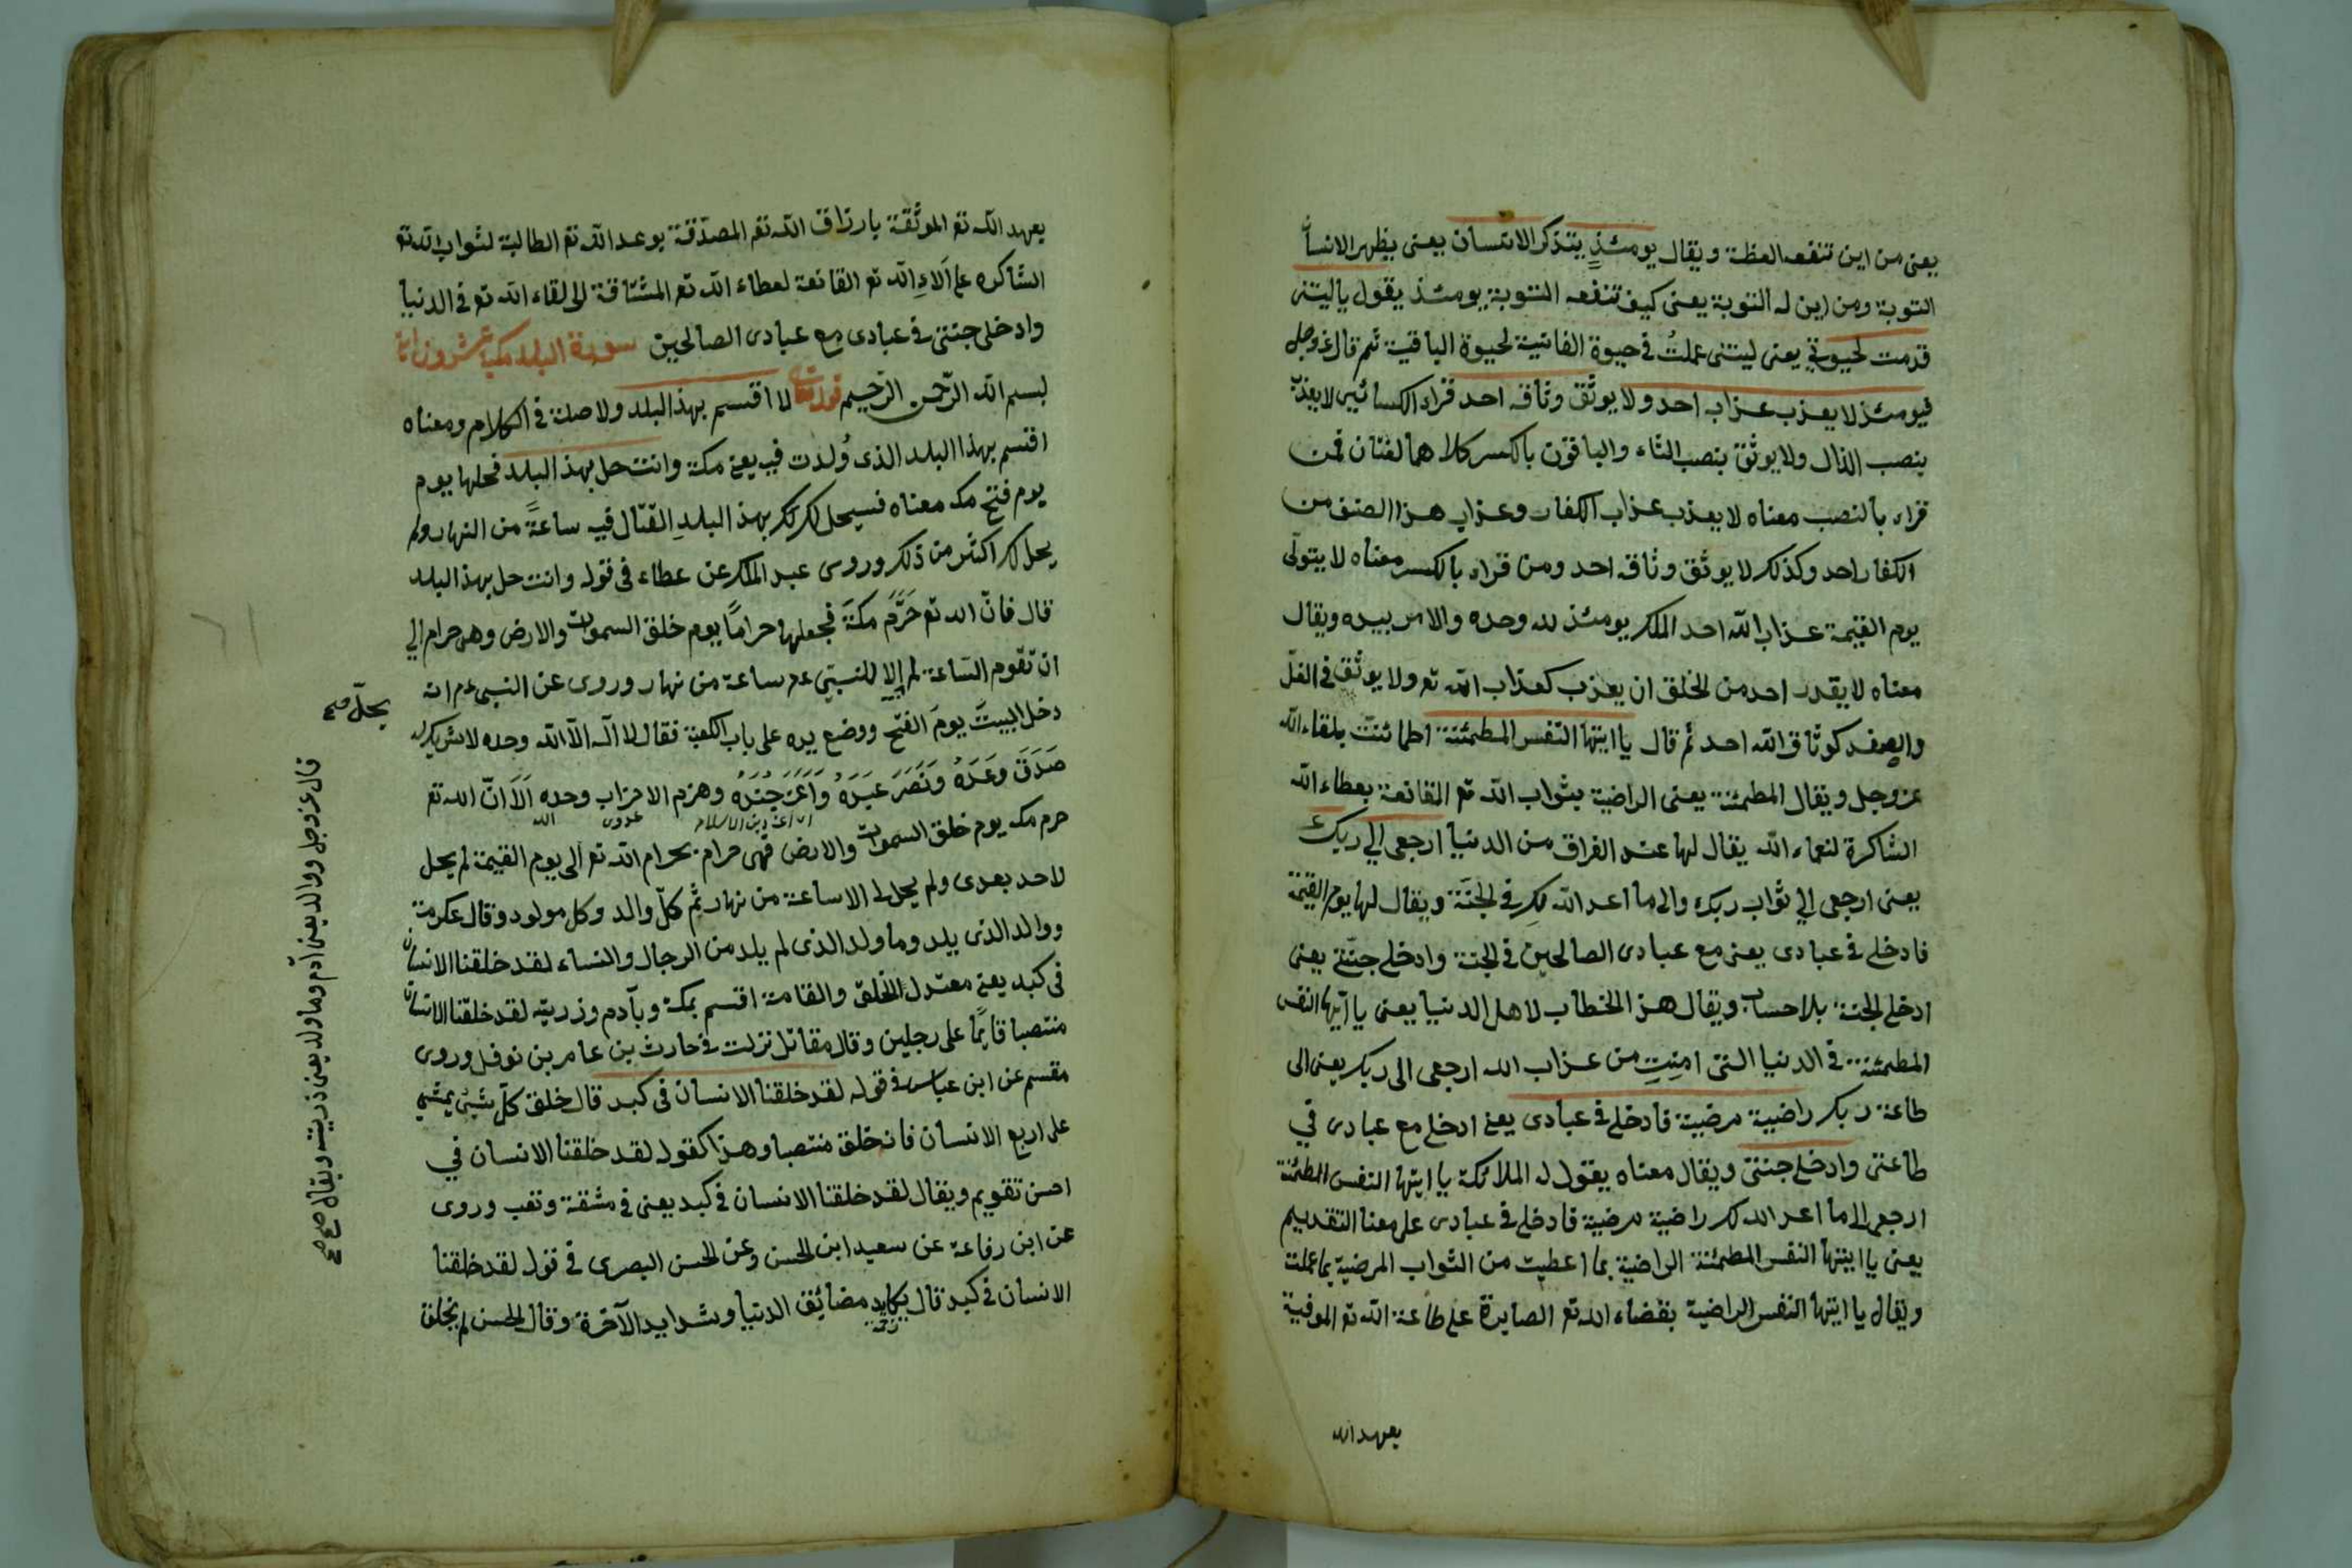 يعنى من اين تنفعه العظة ويقال يومئذٍ يتذكر الانسان يعنى يظهر الانسان
التوبة ومن اين له التوبة يعنى كيف تنفعه التوبة يومئذ يقول ياليتنى
قدمت لحيوتى يعنى ليتنى عملتُ فى حيوة الفانية لحيوة الباقية ثم قال عزوجل
فيومئذ لا يعذب عذابه احد ولا يوثق وثاقه احد قراء الكسائيى لا يعذب
بنصب الذال ولا يوثق بنصب الثاء والباقون بالكسر كلاهما لغتان فمن
قراء بالنصب معناه لا يعذب عذاب الكفار وعذاب هذا الصنف من
الكفار احد وكذلك لا يوثق وثاقه احد ومن قراء بالكسر معناه لا يتولّى
يوم القيمة عذاب الله احد الملك يومئذ لله وحده والامر بيده ويقال
معناه لا يقدر احد من الخلق ان يعذب كعذاب الله تع ولا يوثق فى الغلّ
والصفد كوثاق الله احد ثم قال يا ايتها النفس المطمئنة اطمائنت بلقاء الله
عزوجل ويقال المطمئنة يعنى الراضية بثواب الله تع القانعة بعطاء الله
الشاكرة لنعماء الله يقال لها عند الفراق من الدنيا ارجعى الي ربك
يعنى ارجعى الي ثواب ربك والى ما اعد الله لكِ فى الجنّة ويقال لها يوم القيمة
فادخلى فى عبادى يعنى مع عبادى الصالحين فى الجنة وادخلى جنّتى يعنى
ادخلى الجنة بلا حساب ويقال هذ الخطاب لاهل الدنيا يعنى يا ايتها النفس
المطمئنة فى الدنيا التى امِنِتِ من عذاب الله ارجعى الى ربك يعنى الى
طاعة ربك راضية مرضية فادخلى فى عبادى يعنى ادخلى مع عبادى في
طاعتى وادخلى جنتى ويقال معناه يقول له الملائكة يا ايتها النفس المطمئنة
ارجعى الى ما اعد الله لك راضية مرضية فادخلى فى عبادى على معنا التقديم
يعنى يا ايتها النفس المطمئنة الراضية بما اعطيت من الثواب المرضية بما عملت
ويقال يا ايتها النفس الراضية بقضاء الله تع الصابرة على طاعة الله تع الموفية
بعهد الله
بعهد الله تع الموثقة بارزاق الله تع المصدّقة بوعد الله تع الطالبة لثواب الله تع
الشاكره على آلاءِ الله تع القانعة لعطاء الله تع المشتاقة الى لقاء الله تع فى الدنيا
وادخلى جنتى فى عبادى مع عبادى الصالحين سورة البلد مكية
بسم الله الرّحمن الرّحيم قوله تعالى لا اقسم بهذ البلد ولا صلة فى الكلام ومعناه
اقسم بهذا البلد الذى وُلدت فيه يعنى مكة وانت حل بهذ البلد فحلها يوم
يوم فتح مكه معناه فسيحل لك بهذ البلدِ القتال فيه ساعةً من النهار ولم
يحل لك اكثر من ذلك وروى عبد الملك عن عطاء فى قوله وانت حل بهذ البلد
قال فانّ الله تع حَرَّمَ مكةَ فجعلها حرامًا يوم خلق السموات والارض وهى حرام الي
ان تقوم السّاعة لم إلا للنبيّ عم ساعة من نهار وروى عن النبى عم انه
يحلّ صح
دخل البيتَ يومَ الفتح ووضع يده على باب الكعبة فقال لا اله الاّ الله وحده لا شريك له
صَدَقَ وَعَدَهُ وَنَصَرَ عَبَدَهُ وَاَعَزَ جُنَدَهُ وهزم الاحزاب وحده اَلاَ انّ الله تع
حرم مكه يوم خلق السموات والارض فهى حرام بحرام الله تع الى يوم القيمة لم يحل
لاحد بعدى ولم يحل لى الا ساعة من نهار ثم كلّ والد وكل مولود وقال عكرمة
ووالد الذى يلد وما ولد الذى لم يلد من الرجال والنساء لقد خلقنا الانسان
فى كبد يعنى معتدل الخلق والقامة اقسم بمكة وبآدم وذريته لقد خلقنا الانسان
منتصبا قايمًا على رجلين وقال مقاتل نزلت فى حارث بن عامر بن نوفل وروى
مقسم عن ابن عباس فى قوله لقد خلقنا الانسان فى كبد قال خلق كلّ شئ يمشى
على اربع الا الانسان فانه خلق منتصبا وهذا كقوله لقد خلقنا الانسان في
احسن تقويم ويقال لقد خلقنا الانسان فى كبد يعنى فى مشقة وتعب وروى
عن ابن رفاعة عن سعيد ابن الحسن وعن الحسن البصرى فى قوله لقد خلقنا
الانسان فى كبد قال يكابد مضائق الدنيا وشدايد الآخرة وقال الحسن لم يخلق
قال عزوجل ووالد يعنى آدم وما ولد يعنى ذريته ويقال صح